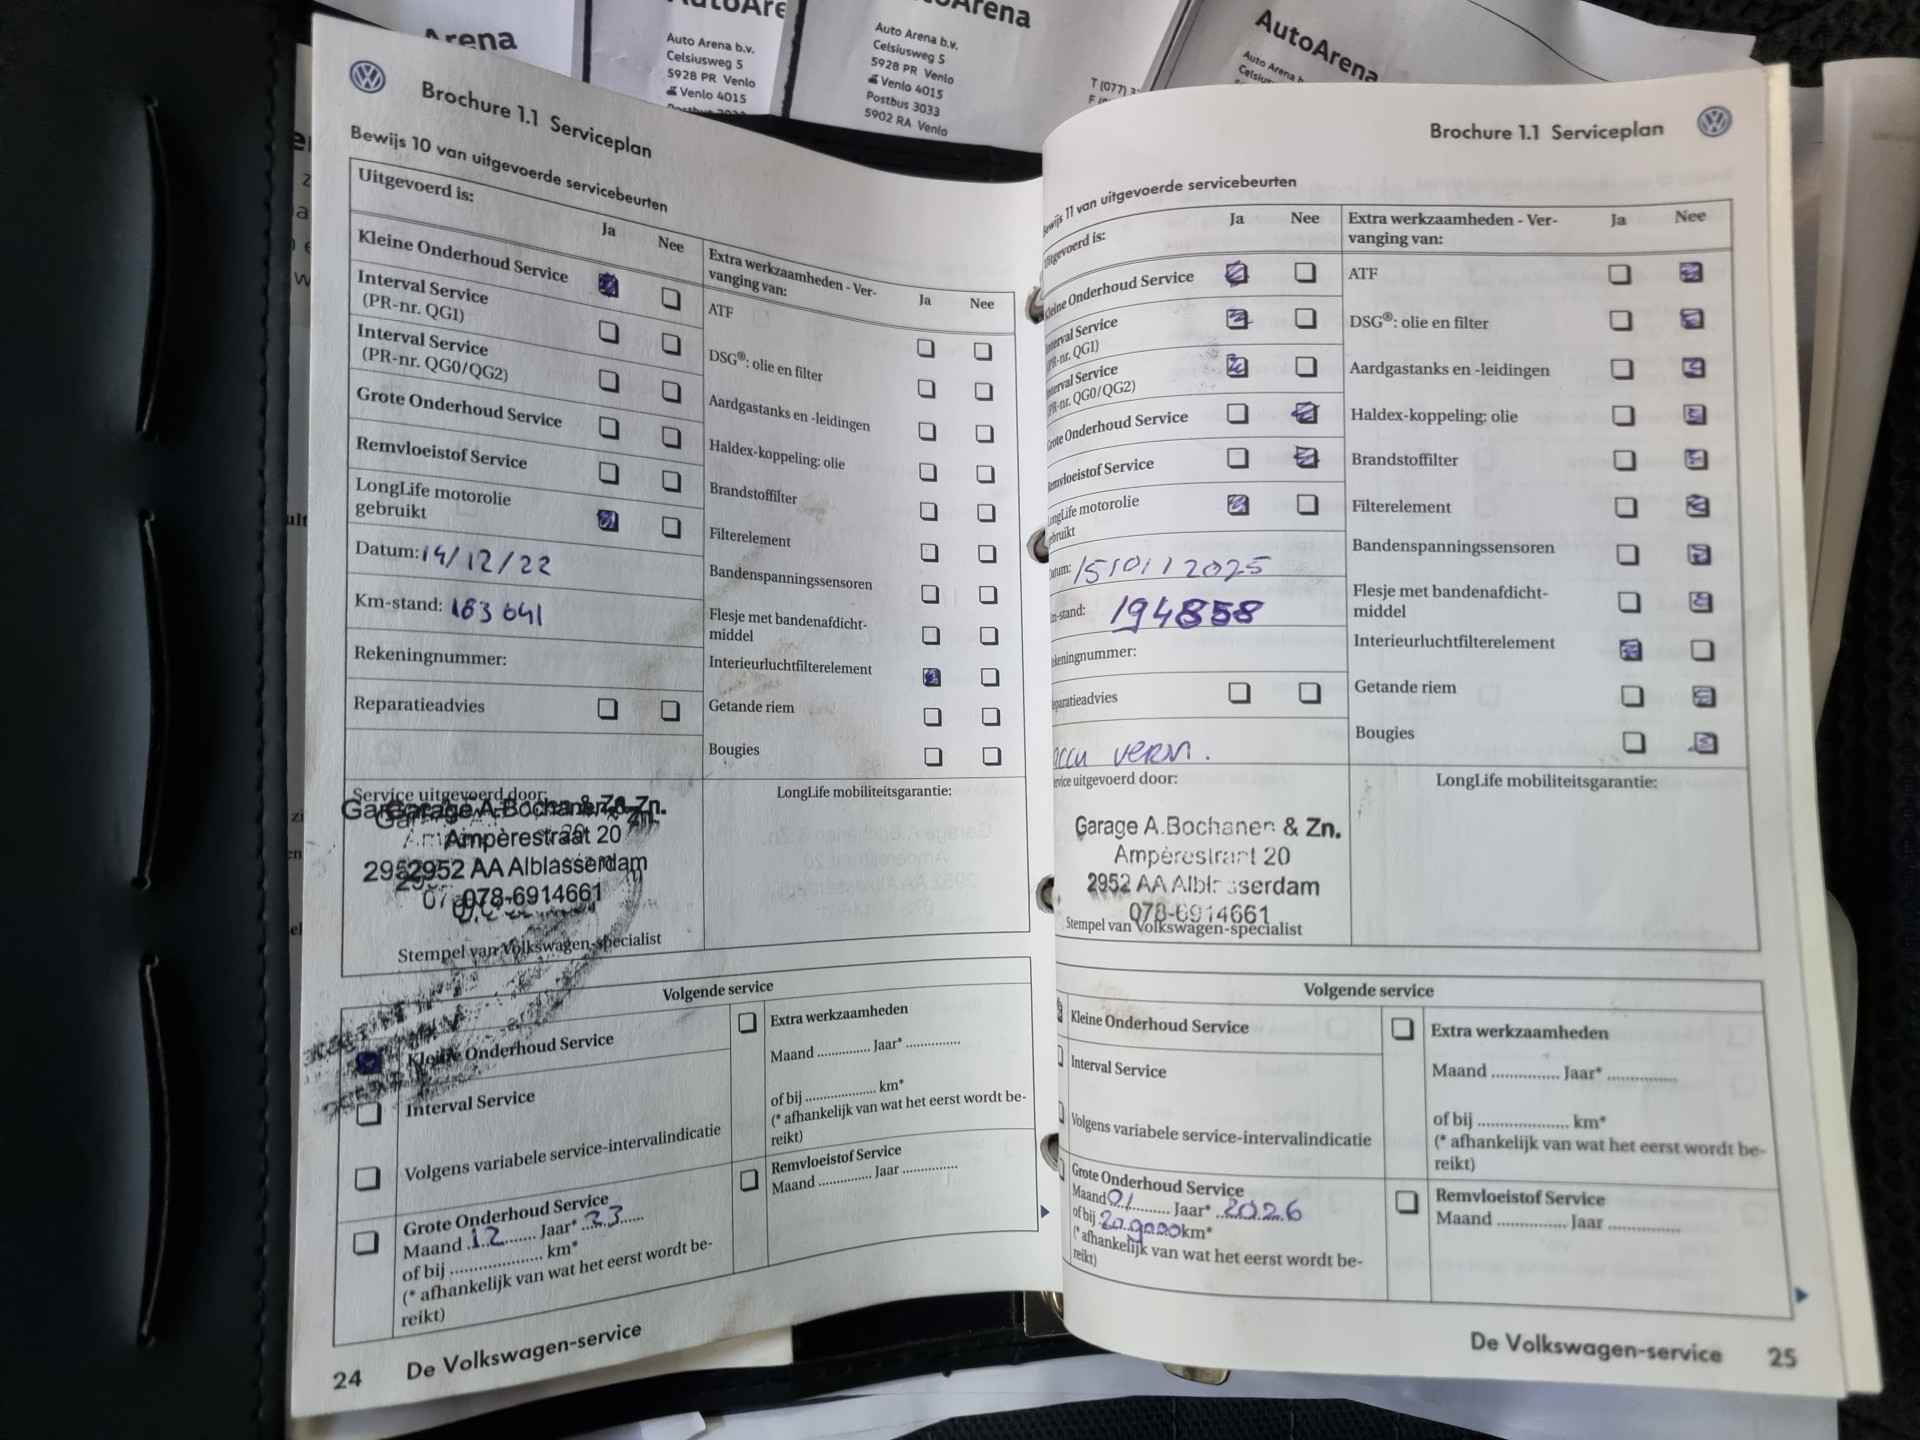 Arena
AutoAre
Auto Arena b.v.
Celsiusweg 5
5928 PR Venlo
Venlo 4015
Arena
Auto Arena b.v.
Celsiusweg 5
5928 PR Venlo
Venlo 4015
Postbus 3033
5902 RA Venlo
T (077) 3
AutoArena
Brochure 1.1 Serviceplan
Bewijs 10 van uitgevoerde servicebeurten
Uitgevoerd is:
Ja Nee
Kleine Onderhoud Service
Interval Service
(PR-nr. QG1)
Interval Service
(PR-nr. QG0/QG2)
Grote Onderhoud Service
Remvloeistof Service
LongLife motorolie
gebruikt
Datum: 14/12/22
Km-stand: 183 641
Rekeningnummer:
Reparatieadvies
Extra werkzaamheden - Ver-
vanging van:
Ja Nee
ATF
DSG®: olie en filter
Aardgastanks en -leidingen
Haldex-koppeling: olie
Brandstoffilter
Filterelement
Bandenspanningssensoren
Flesje met bandenafdicht-
middel
Interieurluchtfilterelement
Getande riem
Bougies
Service uitgevoerd door:
Garage A.Bochanen & Zn.
Ampèrestraat 20
2952 AA Alblasserdam
078-6914661
Stempel van Volkswagen-specialist
LongLife mobiliteitsgarantie:
Volgende service
Kleine Onderhoud Service
Interval Service
Volgens variabele service-intervalindicatie
Grote Onderhoud Service
Maand 12 Jaar* 23
of bij .................... km*
(* afhankelijk van wat het eerst wordt be-
reikt)
Extra werkzaamheden
Maand ............... Jaar* ...............
of bij .................... km*
(* afhankelijk van wat het eerst wordt be-
reikt)
Remvloeistof Service
Maand ............... Jaar ...............
24 De Volkswagen-service
Brochure 1.1 Serviceplan
Bewijs 11 van uitgevoerde servicebeurten
Uitgevoerd is:
Ja Nee
Kleine Onderhoud Service
Interval Service
(PR-nr. QG1)
Interval Service
(PR-nr. QG0/QG2)
Grote Onderhoud Service
Remvloeistof Service
LongLife motorolie
gebruikt
Datum: 15/01/2025
Km-stand: 194858
Rekeningnummer:
Reparatieadvies
accu vervn.
Extra werkzaamheden - Ver-
vanging van:
Ja Nee
ATF
DSG®: olie en filter
Aardgastanks en -leidingen
Haldex-koppeling: olie
Brandstoffilter
Filterelement
Bandenspanningssensoren
Flesje met bandenafdicht-
middel
Interieurluchtfilterelement
Getande riem
Bougies
Service uitgevoerd door:
Garage A.Bochanen & Zn.
Ampèrestraat 20
2952 AA Alblasserdam
078-6914661
Stempel van Volkswagen-specialist
LongLife mobiliteitsgarantie:
Volgende service
Kleine Onderhoud Service
Interval Service
Volgens variabele service-intervalindicatie
Grote Onderhoud Service
Maand 01 Jaar* 2026
of bij 209000 km*
(* afhankelijk van wat het eerst wordt be-
reikt)
Extra werkzaamheden
Maand ............... Jaar* ...............
of bij .................... km*
(* afhankelijk van wat het eerst wordt be-
reikt)
Remvloeistof Service
Maand ............... Jaar ...............
De Volkswagen-service 25